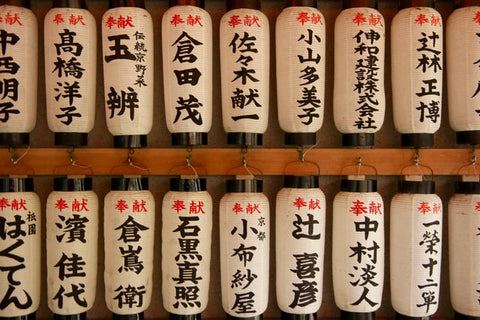 奉献
中西明子
奉献
高橋洋子
奉献
伝統京野菜
玉辨
奉献
倉田茂
奉献
佐々木献一
奉献
小山多美子
奉献
伸和建設株式会社
奉献
辻林正博
奉献
奉献
祇園
はくてん
奉献
濱佳代
奉献
倉嶌衛
奉献
石黒真照
奉献
京都
小布紗屋
奉献
辻喜彦
奉献
中村淡人
奉献
一榮十二蟬